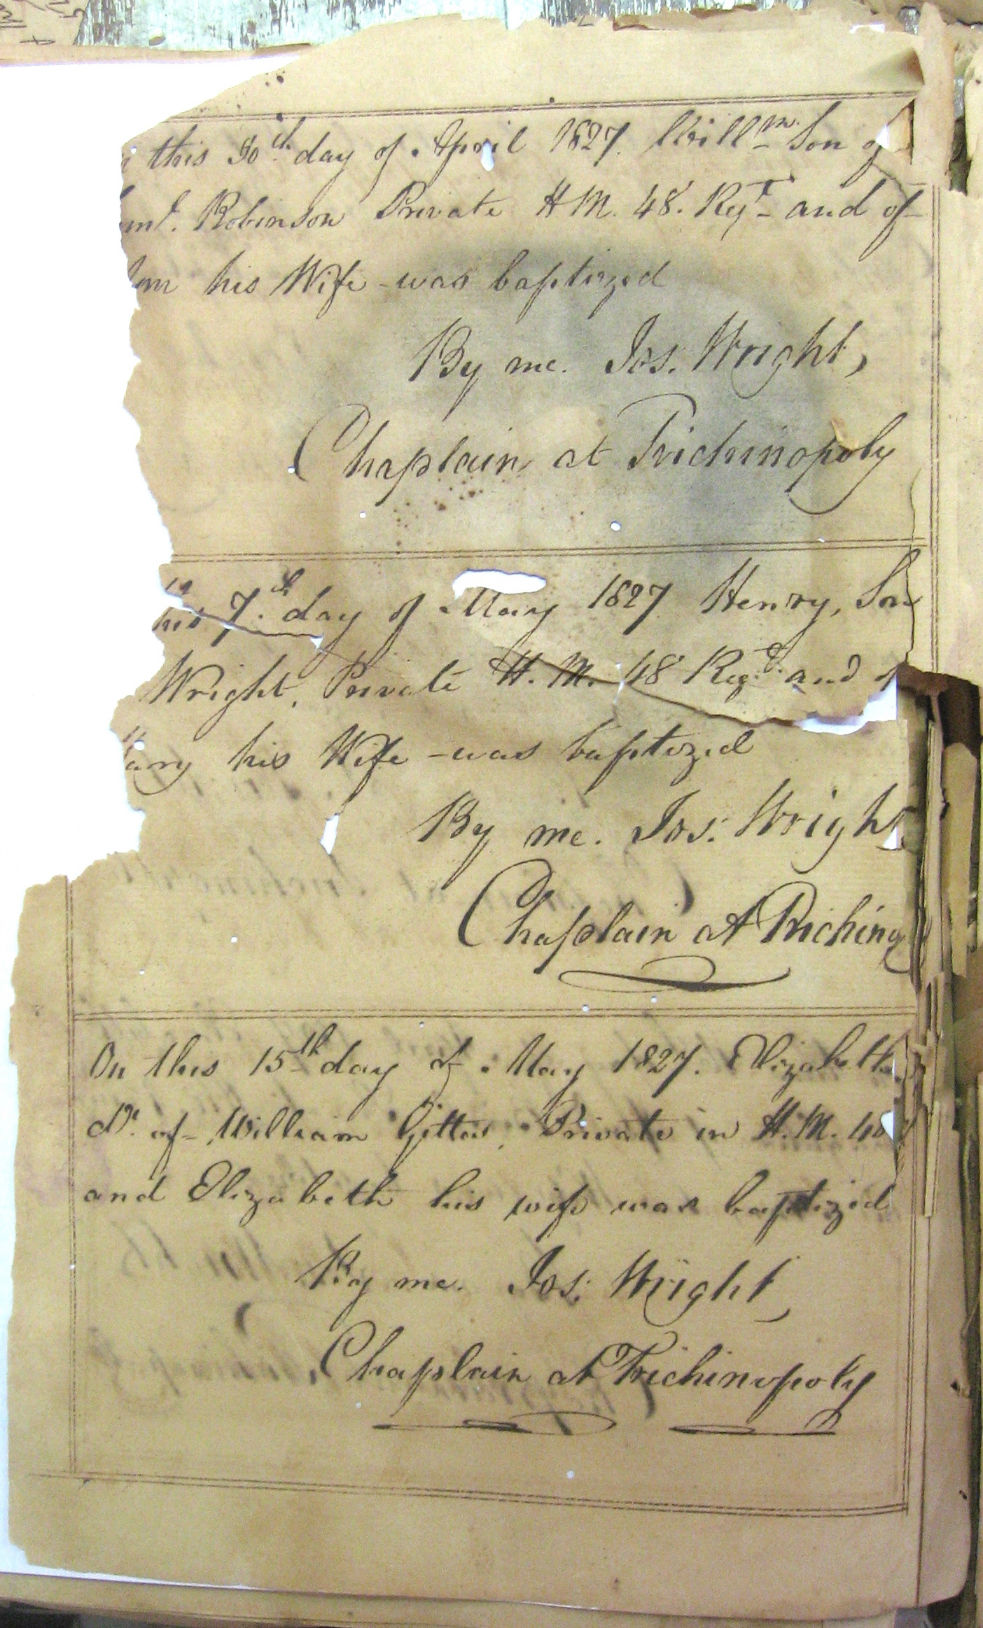 this 30th day of April 1827. Willm Son of
Robinson Private H M. 48. Regt and of
his Wife - was baptized
By me. Jos: Wright,
Chaplain at Trichinopoly
this 7th day of May 1827 Henry, Son
Wright, Private H. M. 48 Regt and of
Mary his Wife - was baptized
By me. Jos: Wright
Chaplain at Trichinop
On this 15th day of May 1827. Elizabeth
dr. of William Private in H. M. 48
and Elizabeth his wife was baptized
By me. Jos: Wright
Chaplain at Trichinopoly